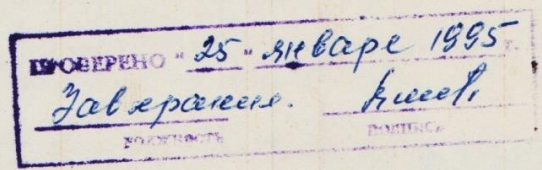 ПРОВЕРЕНО "25" январе 1995 г.
Зав хранил.
должность подпись